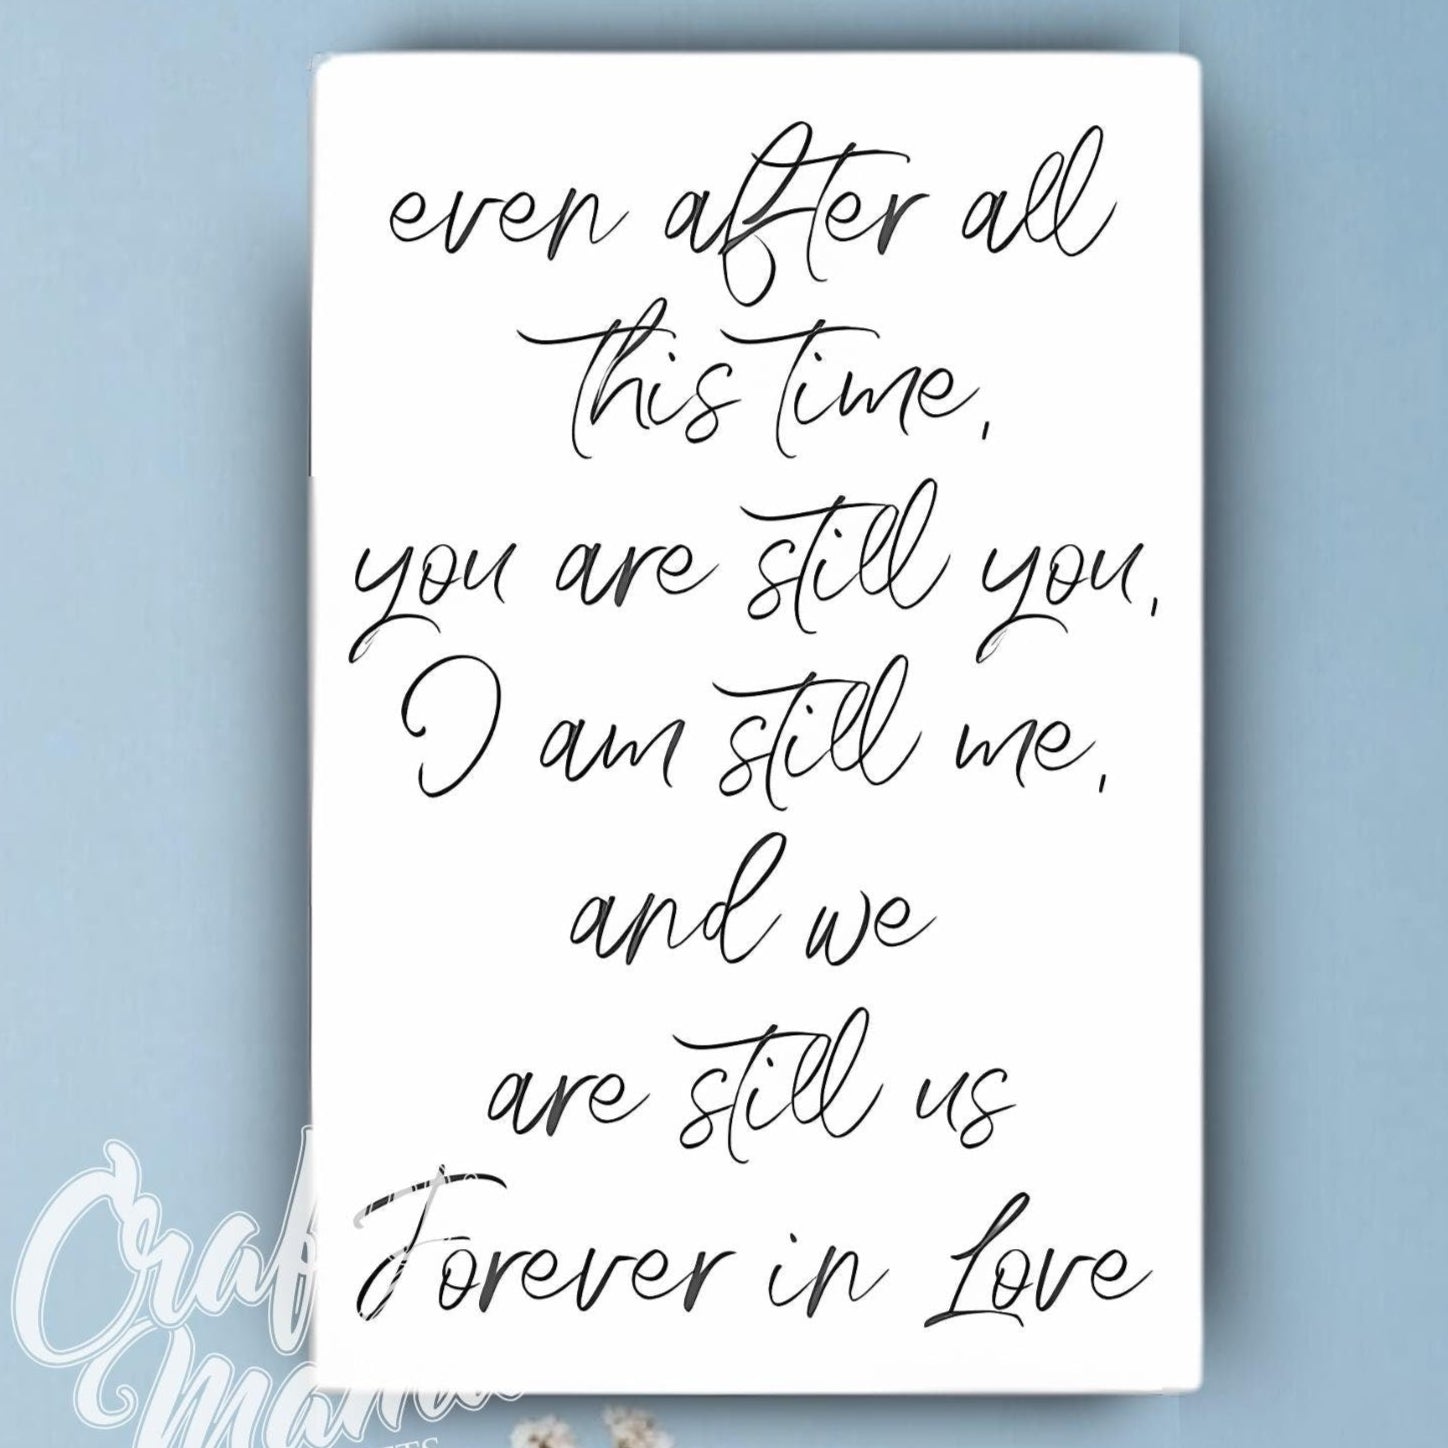 even after all
this time,
you are still you,
I am still me,
and we
are still us
Forever in Love
Craft
Mama